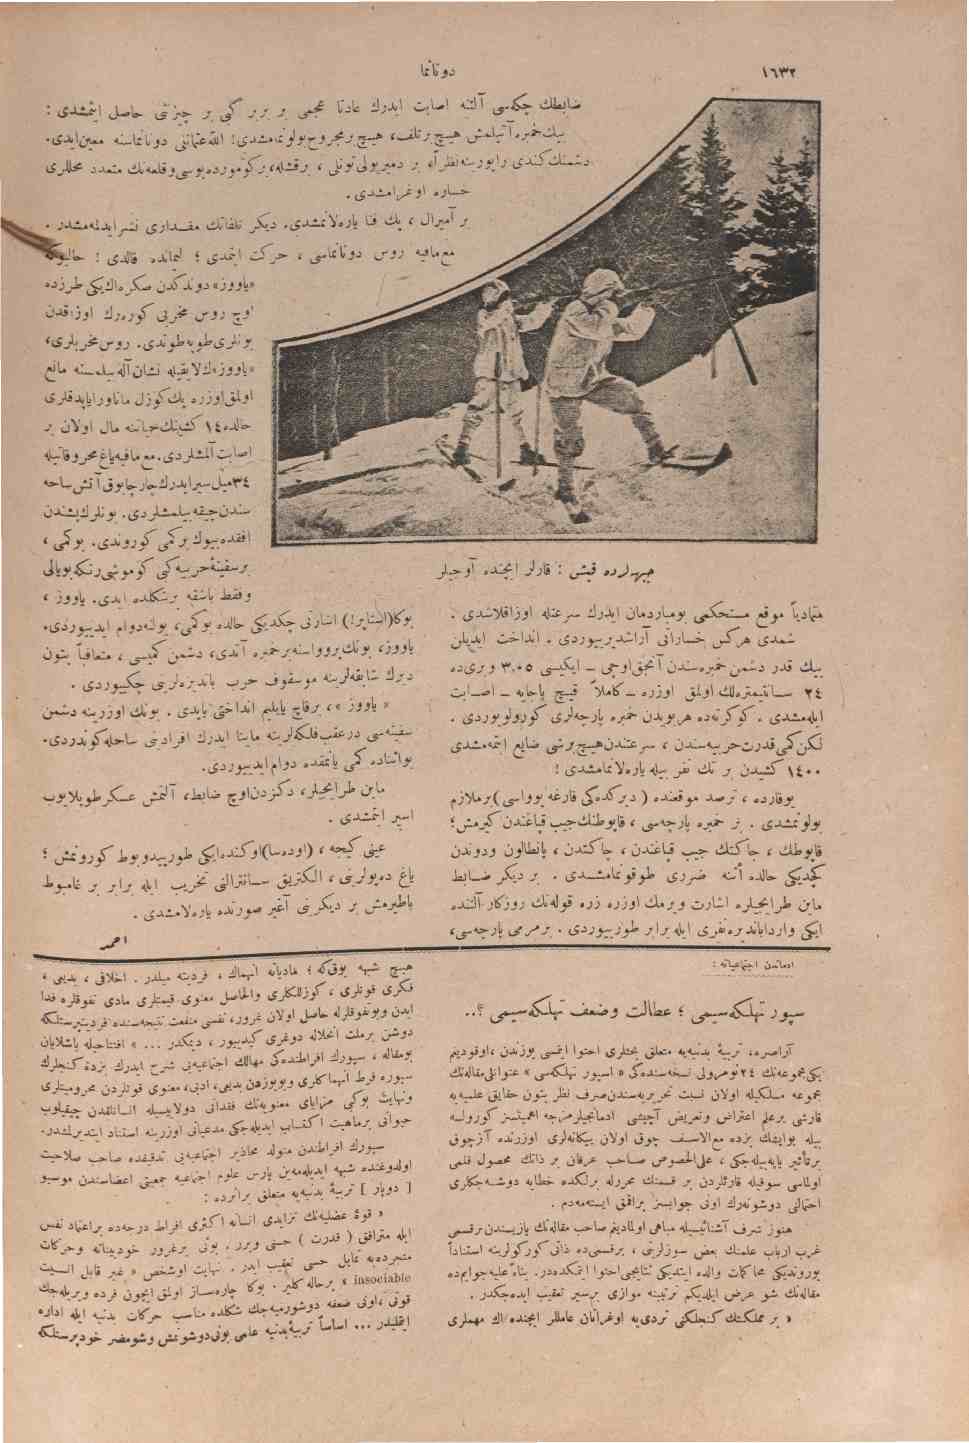 ١٦٣٢
دونانما
ضابطك چكه‌سی آلتنه اصابت ایدرك عادتا عجمی بر بربر كبی بر چیزنتی حاصل ایتمشدی :
بیك خمبره آتیلمش هیچ بر تلف، هیچ بر مجروح بولونمامشدی! الله عثمانلی دونانماسنه معین ایدی.
دشمنك كندی راپورینه نظراً بر دمیریولی تونلی ، بر قشله، بر كومور ده‌پوسی و قلعه‌نك متعدد محللری
خساره اوغرامشدی .
بر آمیرال ، پك فنا یاره‌لانمشدی. دیكر تلفاتك مقداری نشر ایدلمه‌مشدر .
مع‌مافیه روس دونانماسی ، حركت ایتمدی ؛ لیمانده قالدی ! حالبوكه
«یاووز» دوندكدن صكره اك یكی طرزده
اوچ روس مخربی كوره‌رك اوزاقدن
بونلری طوپه طوتدی. روس مخربلری،
«یاووز»ك لایقیله نشان آله بیلمسنه مانع
اولمق اوزره پك كوزل مانورا یاپدقلری
حالده ١٤ كشینك حیاتنه مال اولان بر
اصابت آلمشلردی. مع مافیه یاغ محروقاتیله
٣٤ میل سیر ایدرك چارچابوق آتش ساحه
سندن چیقه بیلمشلردی. بونلرك پشندن
افقده بیوك بر كمی كوروندی. بو كمی ،
بر سفینهٔ حربیه كبی كوموشی رنكه بویالی
و فقط باشقه بر شكلده ایدی. یاووز ،
بوكا (استاپر!) اشارتی چكدیكی حالده بو كمی، یولنه دوام ایدییوردی.
یاووز، بونك پروواسنه بر خمبره آتدی، دشمن كمیسی ، متعاقباً بتون
دیرك شابقه‌لرینه موسقوف حرب باندیره‌لرینی چكییوردی .
« یاووز »، بر قاچ یایلیم انداختی یاپدی . بونك اوزرینه دشمن
سفینه‌سی درعقب فلكه‌لرینه ماینا ایدرك افرادینی ساحله كوندردی.
بو اثناده كمی یانمقده دوام ایدییوردی.
ماین طرایجیلر، دكزدن اوچ ضابط، آلتمش عسكر طوپلایوب
اسیر ایتمشدی .
عینی كیجه ، (اوده‌سا) اوكنده ایكی طورپیدوبوط كورونمش ؛
یاغ ده‌پولرینی ، الكتریق سانترالنی تخریب ایله برابر بر غامبوط
باطیرمش بر دیكرینی آغیر صورتده یاره‌لامشدی .
احمد
جبهه‌لرده قیش : قارلر ایچنده آوجیلر
متمادیاً موقع مستحكمی بومباردمان ایدرك سرعتله اوزاقلاشدی .
شمدی هركس خساراتی آراشدیرییوردی . انداخت ایدیلن
بیك قدر دشمن خمبره‌سندن آنجق اوچی ــ ایكیسی ٣٠،٥ و بری ده
٢٤ سانتیمتره‌لك اولمق اوزره ــ كاملاً قیچ باجایه ــ اصابت
ایله‌مشدی . كوكرته‌ده هر بویدن خمبره پارچه‌لری كورولویوردی .
لكن كمی قدرت حربیه‌سندن ، سرعتندن هیچ بر شی ضایع ایتمه‌مشدی
١٤٠٠ كشیدن بر تك نفر بیله یاره‌لانمامشدی !
یوقارده ، ترصد موقعنده ( دیركده‌كی قارغه یوواسی) بر ملازم
بولونمشدی . بر خمبره پارچه‌سی ، قاپوطنك جیب قپاغندن كیرمش؛
قاپوطك ، جاكتك جیب قپاغندن ، جاكتدن ، پانطالون ودوندن
كچدیكی حالده أتنه ضرری طوقونمامشدی . بر دیكر ضابط
ماین طرایجیلره اشارت ویرمك اوزره زره قوله‌نك روزكار آلتنده
ایكی واردا باندیره نفری ایله برابر طورییوردی . بر مرمی پارچه‌سی،
ادماندن اجتماعیاته :
سپور تهلكه‌سیمی ؛ عطالت وضعف تهلكه‌سیمی ؟..
آراصره، تربیهٔ بدنیه‌یه متعلق بحثلری احتوا ایتمسی یوزندن ، اوقودیغم
یكی مجموعه‌نك ٢٤ نومرولی نسخه‌سنده‌كی « اسپور تهلكه‌سی » عنوانلی مقاله‌نك
مجموعه مسلكیله اولان نسبت تحریریه‌سندن صرف نظر بتون حقایق علمیه‌یه
قارشی بر علم اعتراض وتعریض آچیشی ادمانجیلرمزجه اهمیتسز كورولسه
بیله بو ایشك بزده مع‌الاسف چوق اولان بیكانه‌لری اوزرنده آز چوق
بر تأثیر یاپه‌بیله‌جكی ، علی‌الخصوص صاحب عرفان بر ذاتك محصول قلمی
اولماسی سوقیله قارئلردن بر قسمنك محررله برلكده خطایه دوشه‌جكلری
احتمالی دوشونه‌رك اونی جوابسز براقمق ایسته‌مه‌دم .
هنوز شرف آشنائیسیله مباهی اولمادیغم صاحب مقاله‌نك یازیسندن بر قسمی
غرب ارباب علمنك بعض سوزلرینی ، بر قسمی ده ذاتی كوركولرینه استناداً
یوروتدیكی محاكمات والده ایتدیكی نتایجی احتوا ایتمكده‌در. بناءً علیه جوابم ده
مقاله‌نك شو عرض ایلدیكم ترتیبنه موازی بر سیر تعقیب ایده‌جكدر .
« بر مملكتك كنجلكنی تردی‌یه اوغراتان عامللر ایچنده اك مهملری
هیچ شبهه یوق كه ؛ مادیاته انهماك ، فردیته میلدر . اخلاقی ، بدیعی ،
فكری قوتلری ، كوزللكلری والحاصل معنوی قیمتلری مادی تفوقلره فدا
ایدن وبو تفوقلرله حاصل اولان غرور، نفسی منفعت نتیجه‌سنده فردیتپرستلكه
دوشن بر ملت انحلاله دوغری كیدییور ، دیمكدر ... » افتتاحیله باشلایان
بو مقاله ، سپورك افراطنده‌كی مهالك اجتماعیه‌یی شرح ایدرك بزده كنجلرك
سپوره فرط انهماكلری وبو یوزدن بدیعی، ادبی، معنوی قوتلردن محرومیتلری
ونهایت بو كبی مزایای معنویه‌نك فقدانی دولاییسیله انسانلقدن چیقیلوب
حیوانی بر ماهیت اكتساب ایدیله‌جكی مدعیاتی اوزرینه استناد ایتدیرلمشدر.
سپورك افراطندن متولد محاذیر اجتماعیه‌یی تدقیقده صاحب صلاحیت
اولدوغنده شبهه ایدیله‌مه‌ین پارس علوم اجتماعیه جمعیتی اعضاسندن موسیو
[ دوپار ] تربیهٔ بدنیه‌یه متعلق بر اثرنده :
« قوهٔ عضلیه‌نك تزایدی انسانه اكثری افراط درجه‌ده بر اعتماد نفس
ایله مترافق ( قدرت ) حسنی ویرر . بونی بر غرور خودبینانه وحركات
متجرده‌یه تمایل حسی تعقیب ایدر . نهایت او شخص « غیر قابل انسیت
insociable » بر حاله كلیر . بوكا چاره‌ساز اولمق ایچون فرده ویریله‌جك
قوتی ، اونی ضعفه دوشورمیه‌جك شكلده مناسب حركات بدنیه ایله اداره
ایتملیدر ... اساساً تربیهٔ بدنیه علمی بونی دوشونمش وشو مضر خودپرستلكه